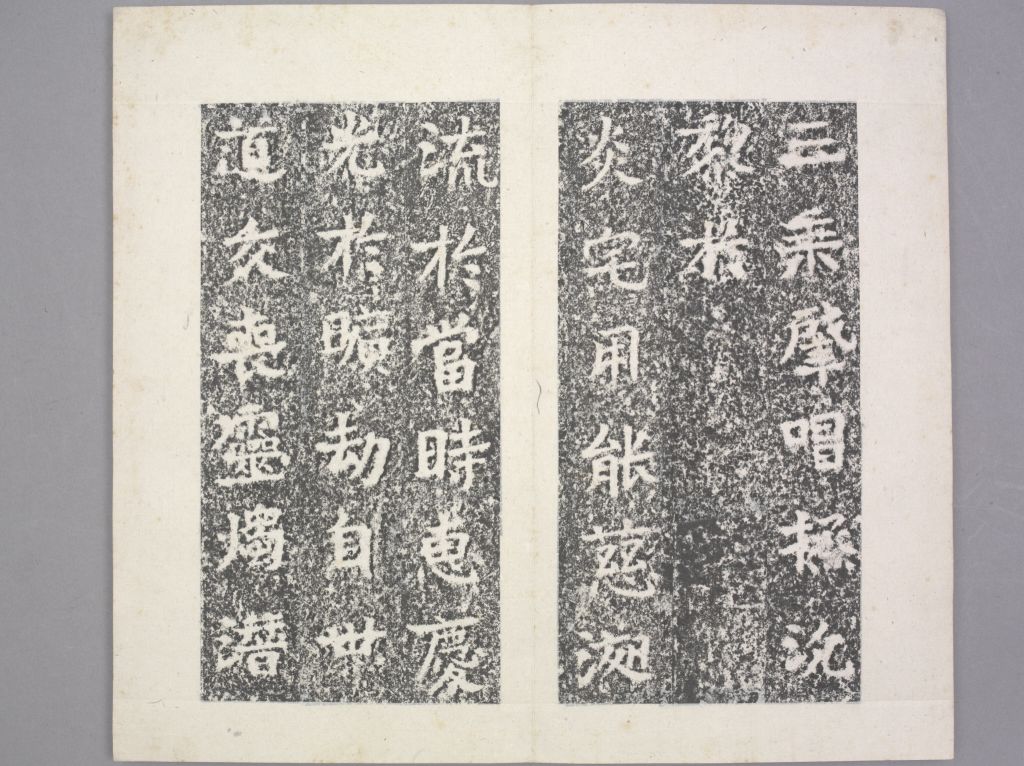 三乗肇唱拯沉
黎於
炎宅用能慈液
流於當時惠慶
光於曠劫自世
道交喪靈燭潛